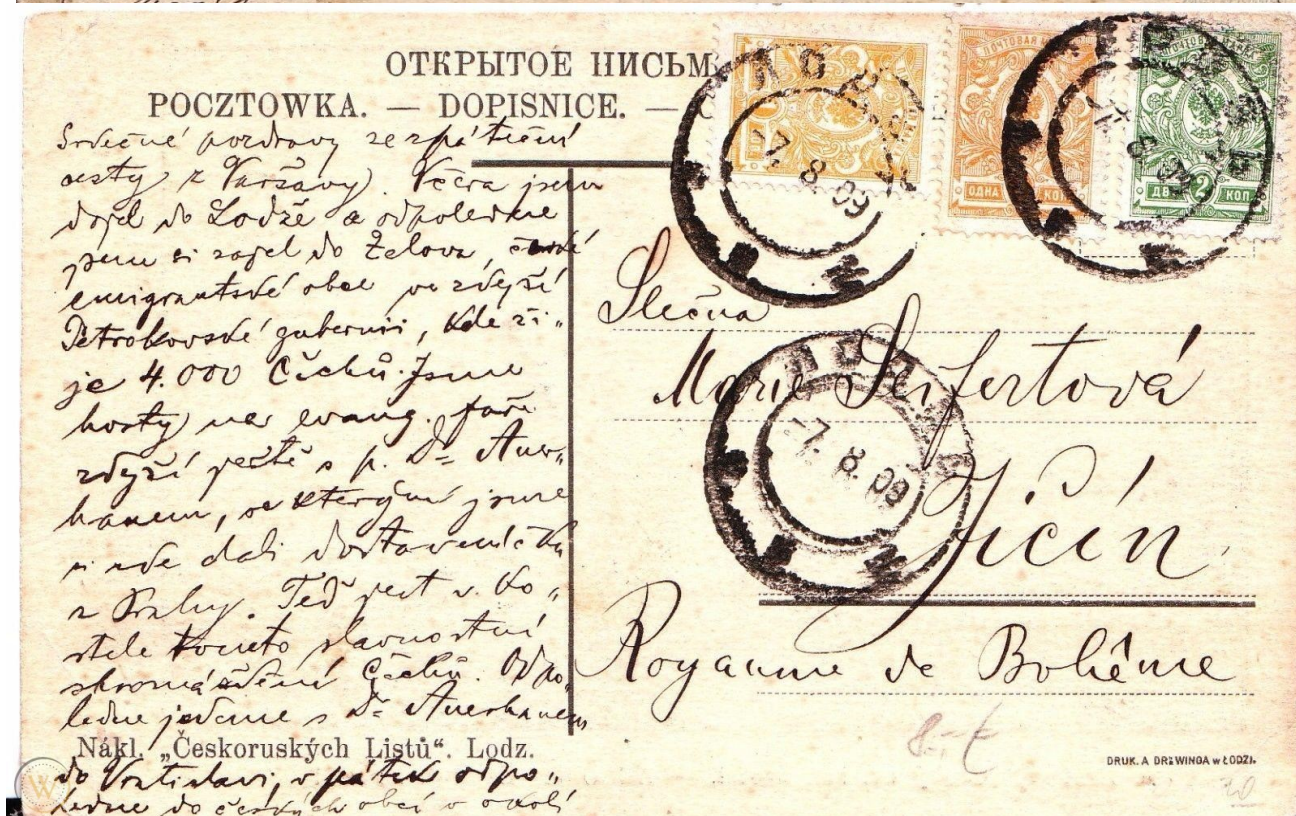 ОТКРЫТОЕ ПИСЬМ
POCZTOWKA. — DOPISNICE. —
Srdečné pozdravy ze zpáteční
cesty z Varšavy. Včera jsem
dojel do Lodže a odpoledne
jsem si zajel do Zelova, české
emigrantské obce ve zdejší
Petrokovské gubernii, kde ži„
je 4.000 Čechů. Jsme
hosty na evang. faře
zdejší ještě s p. Dr Auer„
hanem, se kterým jsme
si zde dali dostaveníčko
z Prahy. Teď jest v ko„
stele tomto slavnostní
shromáždění Čechů. Odpo„
ledne jedeme s Dr Auerhanem
Nákl. „Českoruských Listů“. Lodz.
do Vratislavi, v pátek odpo„
ledne do českých obcí v okolí
7. 8. 09
ОДНА КОП
ДВѢ 2 КОП
7. 8. 09
Slečna
Marie Seifertová
Jičín
Royaume de Bohême
DRUK. A DRZEWINGA w ŁODZI.
20
W